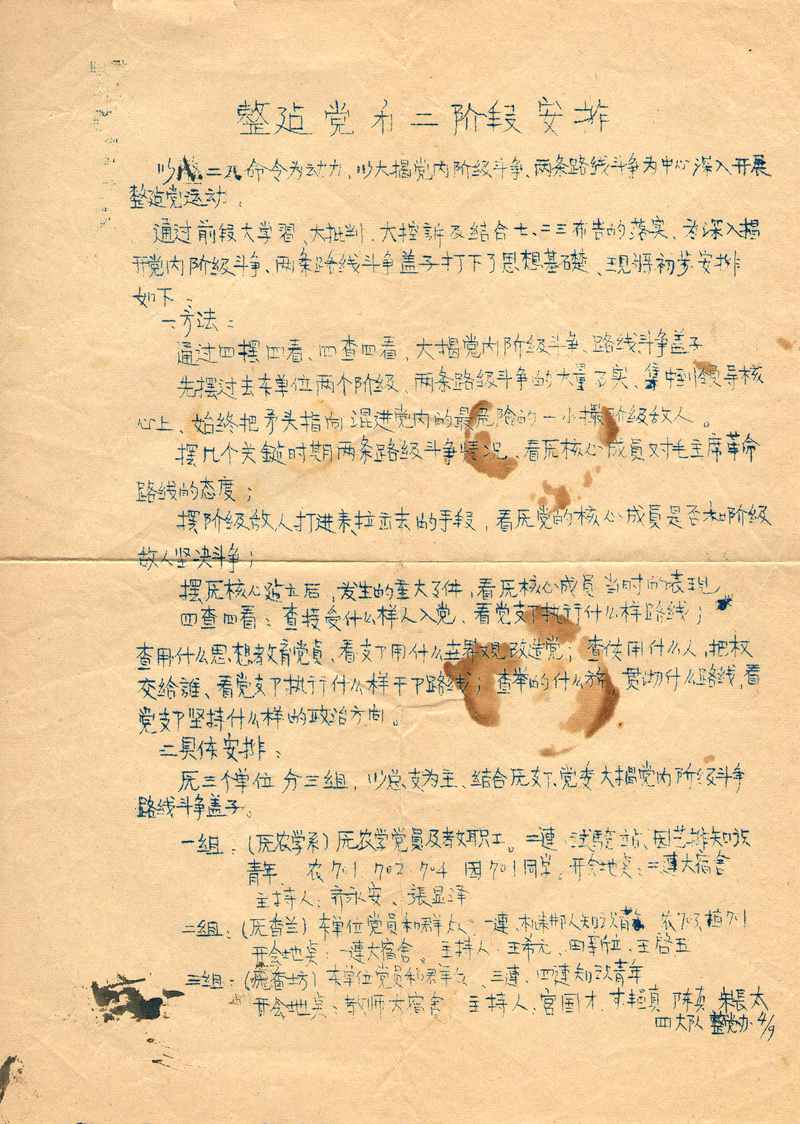 整建党和二阶段安排
以八.二八命令为动力,以大揭党内阶级斗争、两条路线斗争为中心深入开展
整建党运动.
通过前段大学習、大批判、大控訴及结合七.二三布告的落实、为深入揭
开党内阶级斗争、两条路线斗争盖子打下了思想基礎、现将初步安排
如下:
一.方法:
通过四摆四看、四查四看,大揭党内阶级斗争、路线斗争盖子
先摆过去本单位两个阶级、两条路级斗争的大量了实、集中到領导核
心上、始终把矛头指向混进党内的最危险的一小撮阶级敌人。
摆几个关鍵时期两条路级斗争情况、看厡核心成员对毛主席革命
路线的态度;
摆阶级敌人打进来拉出去的手段,看厡党的核心成員是否和阶级
敌人坚决斗争;
摆厡核心建立后,发生的重大了件,看厡核心成员当时的表现
四查四看:查接受什么样人入党、看党支下执行什么样路线;
查用什么思想教育党員、看支下用什么世界观改造党;查使用什么人,把权
交给誰、看党支下执行什么样干下路线;查举的什么旗,贯彻什么路线,看
党支下坚持什么样的政治方向。
二具体安排:
厡三个单位分三组,以总支为主、结合厡支下、党委大揭党内阶级斗争
路线斗争盖子。
一组:(厡农学系)厡农学党員及教职工。二連、试驗站、园艺排知识
青年 农701 702 704 园701同学。开会地点:二連大宿舍
主持人:齐永安、張显泽
二组:(厡香兰)本单位党员和群众、一連、机耕队知识青年 农703 植701
开会地点:一連大宿舍。主持人:王希元、田 王啓五
三组:(厡香坊)本单位党员和群众、三連、四連知识青年
开会地点:教师大宿舍 主持人:宮国才, 陈真 宋長太
四大队整党办 4/9